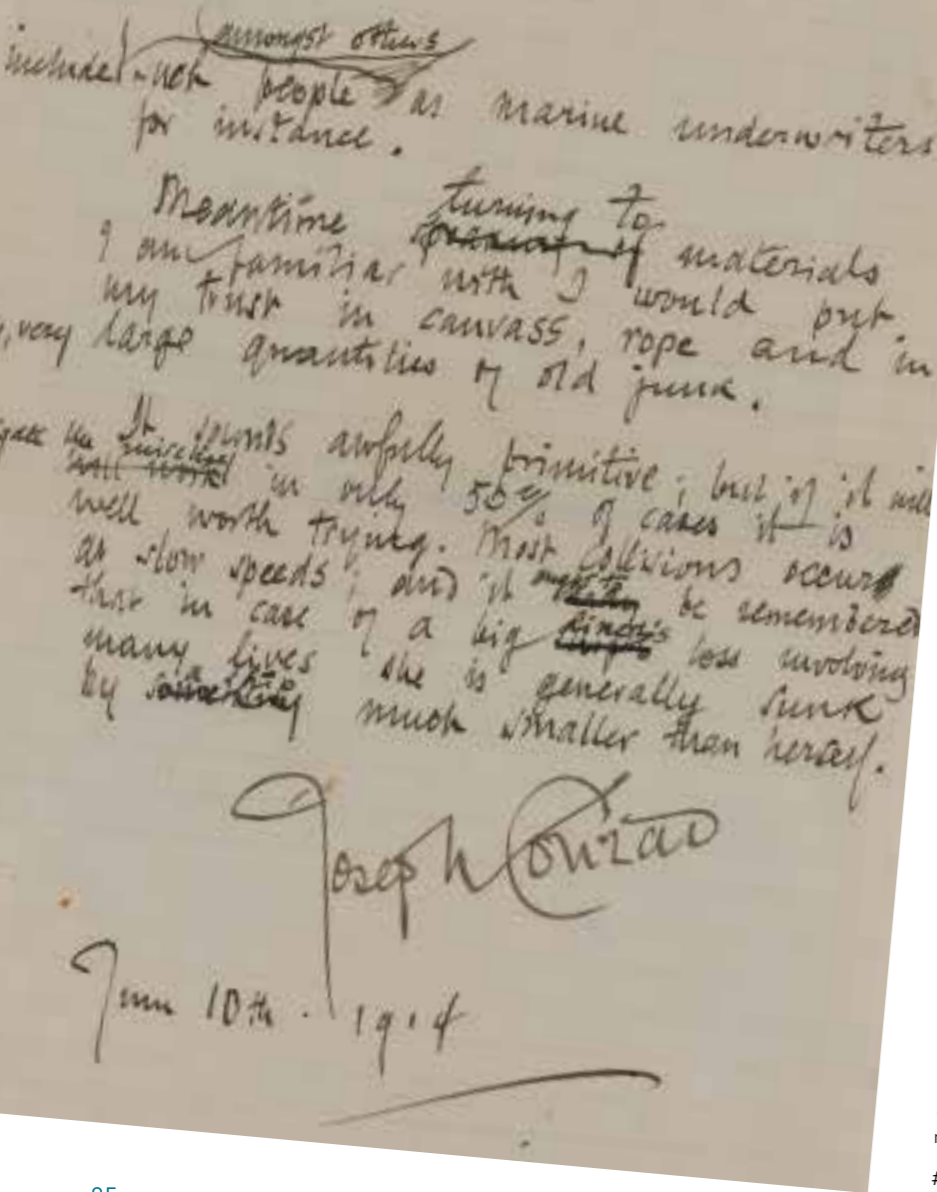 amongst others
include not people as marine underwriters
for instance.
Meantime turning to materials
I am familiar with I would put
my trust in canvass, rope and in
very large quantities of old junk.
It sounds awfully primitive; but if it will
in only 50% of cases it is
well worth trying. Most collisions occur
at slow speeds; and it ought to be remembered
that in case of a big liner's loss involving
many lives she is generally sunk
by a ship much smaller than herself.
Joseph Conrad
June 10th. 1914